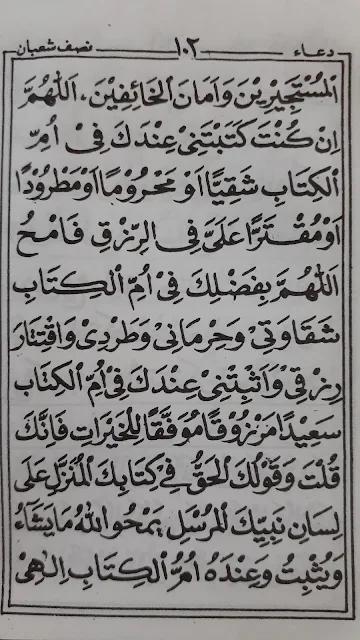 دعاء ١٠٢ نصف شعبان
الْمُسْتَجِيْرِيْنَ وَاَمَانَ الْخَائِفِيْنَ، اَللّٰهُمَّ
اِنْ كُنْتَ كَتَبْتَنِيْ عِنْدَكَ فِيْ اُمِّ
الْكِتَابِ شَقِيًّا اَوْ مَحْرُوْمًا اَوْ مَطْرُوْدًا
اَوْ مُقْتَرًّا عَلَيَّ فِى الرِّزْقِ فَامْحُ
اللّٰهُمَّ بِفَضْلِكَ فِيْ اُمِّ الْكِتَابِ
شَقَاوَتِيْ وَحِرْمَانِيْ وَطَرْدِيْ وَاقْتِتَارَ
رِزْقِيْ وَاَثْبِتْنِيْ عِنْدَكَ فِيْ اُمِّ الْكِتَابِ
سَعِيْدًا مَرْزُوْقًا مُوَفَّقًا لِلْخَيْرَاتِ فَاِنَّكَ
قُلْتَ وَقَوْلُكَ الْحَقُّ فِيْ كِتَابِكَ الْمُنَزَّلِ عَلَى
لِسَانِ نَبِيِّكَ الْمُرْسَلِ يَمْحُو اللّٰهُ مَا يَشَاءُ
وَيُثْبِتُ وَعِنْدَهُ اُمُّ الْكِتَابِ اِلٰهِيْ